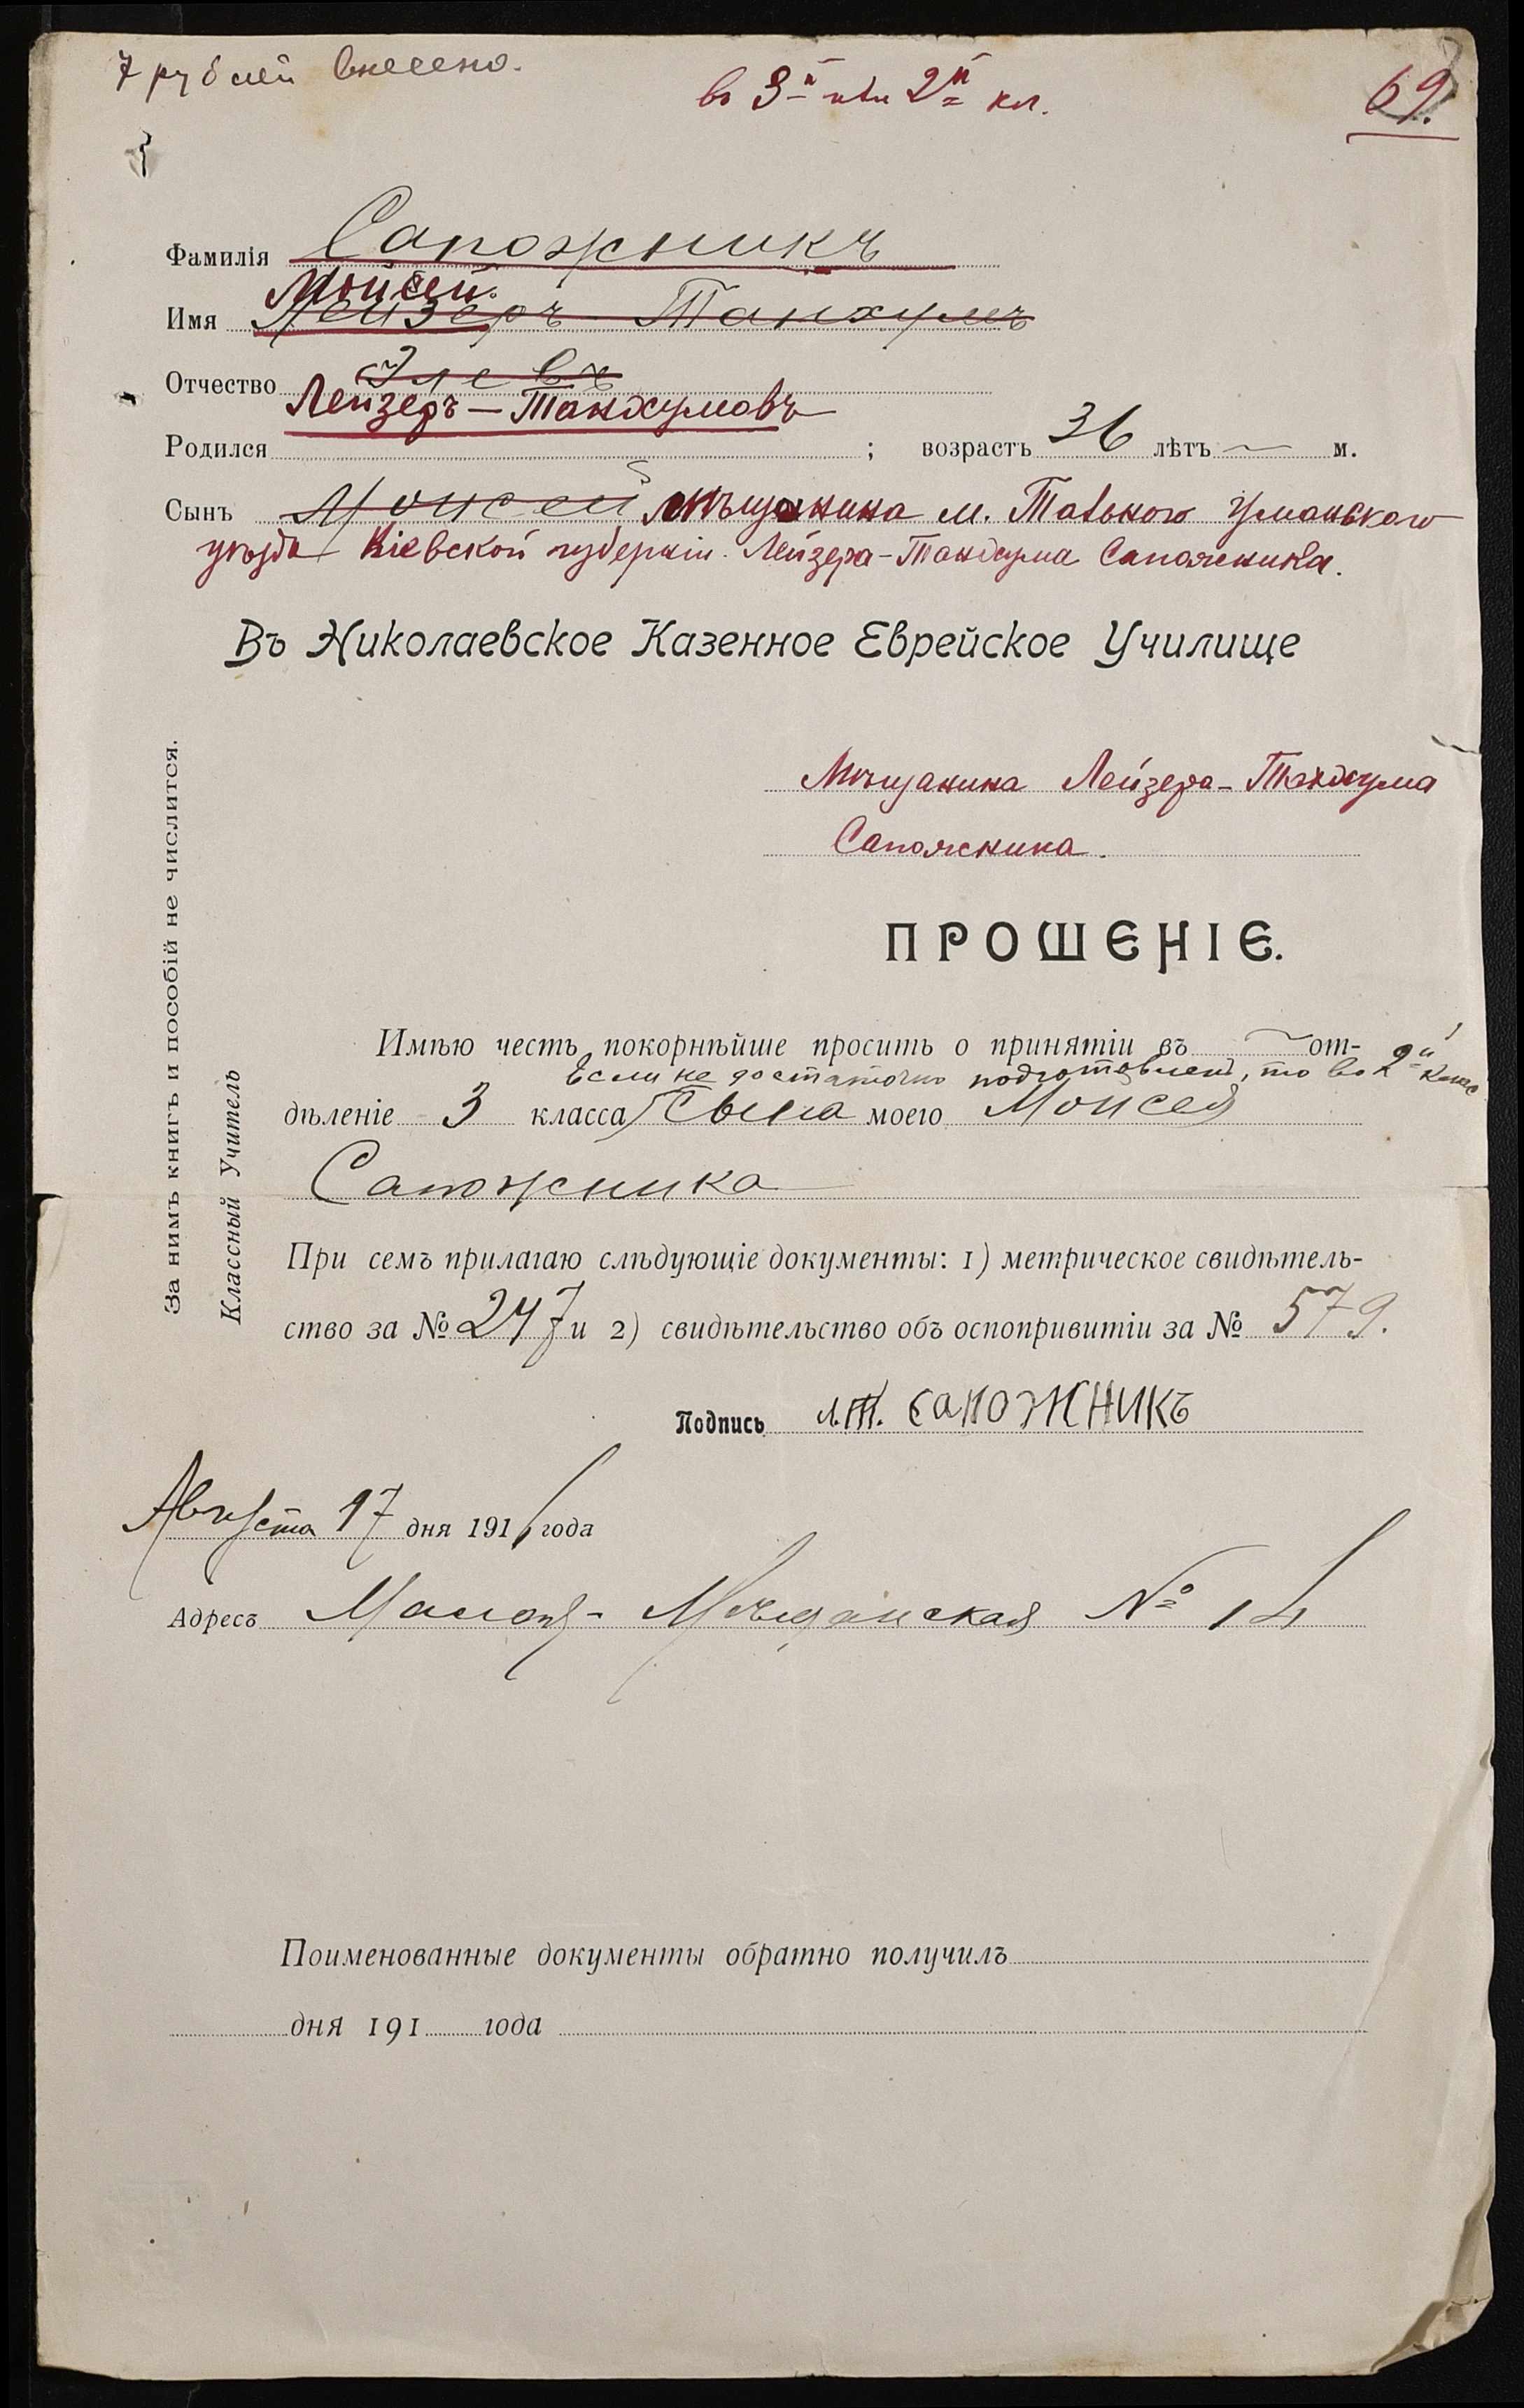 7 рублей внесено.
въ 3й или 2й кл.
69.
Фамилія Сапожникъ
Мойсей.
Имя Лейзеръ Танхумъ
Отчество
Лейзеръ-Танхумовъ
Родился ; возрастъ 36 лѣтъ м.
Сынъ Моисей мѣщанина м. Тального Уманскаго
уѣзда Кіевской губерніи Лейзера-Танхума Сапожника.
Въ Николаевское Казенное Еврейское Училище
Мѣщанина Лейзера-Танхума
Сапожника.
ПРОШЕНІЕ.
Имѣю честь покорнѣйше просить о принятіи въ от-
Если не достаточно подготовленъ, то во 2й класс
дѣленіе 3 класса Сына моего Моисея
Сапожника
При семъ прилагаю слѣдующіе документы: 1) метрическое свидѣтель-
ство за № 247 и 2) свидѣтельство объ оспопривитіи за № 579.
Подпись Л.Т. САПОЖНИКЪ
Августа 17 дня 1911 года
Адресъ Малая-Мѣщанская № 14
Поименованные документы обратно получилъ
дня 191 года
За нимъ книгъ и пособій не числится.
Классный Учитель